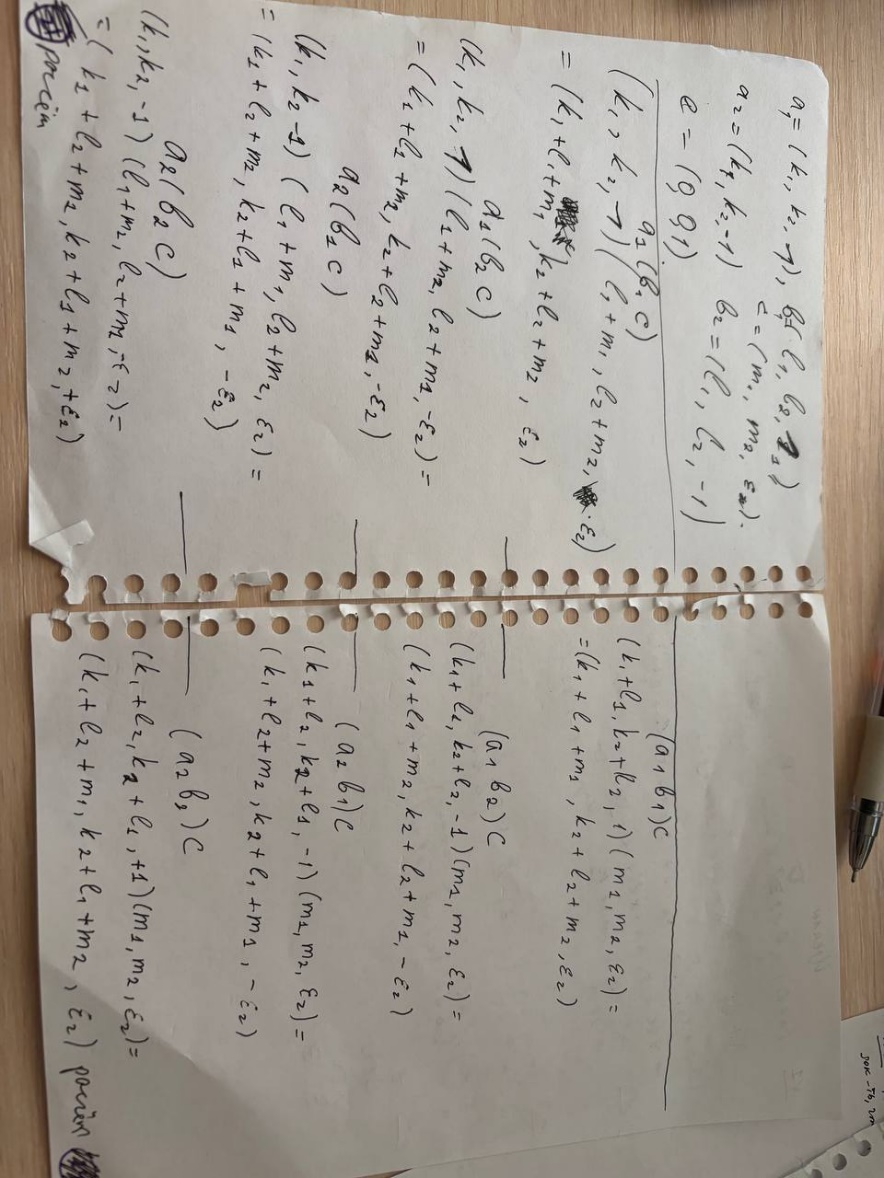 a₁ = (k₁, k₂, 1), b₁ = (l₁, l₂, 1)
c = (m₁, m₂, ε₂).
a₂ = (k₁, k₂, -1) b₂ = (l₁, l₂, -1)
e = (0, 0, 1)
a₁(b₁c)
(k₁, k₂, 1)(l₁+m₁, l₂+m₂, ε₂)
= (k₁+l₁+m₁, k₂+l₂+m₂, ε₂)
a₁(b₂c)
(k₁, k₂, 1)(l₁+m₂, l₂+m₁, -ε₂) =
= (k₁+l₁+m₂, k₂+l₂+m₁, -ε₂)
a₂(b₁c)
(k₁, k₂ -1)(l₁+m₁, l₂+m₂, ε₂) =
= (k₁+l₂+m₂, k₂+l₁+m₁, -ε₂)
a₂(b₂c)
(k₁, k₂, -1)(l₁+m₂, l₂+m₁, -ε₂) =
= (k₁+l₂+m₂, k₂+l₁+m₂, +ε₂)
(a₁b₁)c
(k₁+l₁, k₂+l₂, 1)(m₁, m₂, ε₂) =
= (k₁+l₁+m₁, k₂+l₂+m₂, ε₂)
(a₁b₂)c
(k₁+l₁, k₂+l₂, -1)(m₁, m₂, ε₂) =
(k₁+l₁+m₂, k₂+l₂+m₁, -ε₂)
(a₂b₁)c
(k₁+l₂, k₂+l₁, -1)(m₁, m₂, ε₂) =
(k₁+l₂+m₂, k₂+l₁+m₁, -ε₂)
(a₂b₂)c
(k₁+l₂, k₂+l₁, +1)(m₁, m₂, ε₂) =
(k₁+l₂+m₁, k₂+l₁+m₂, ε₂)